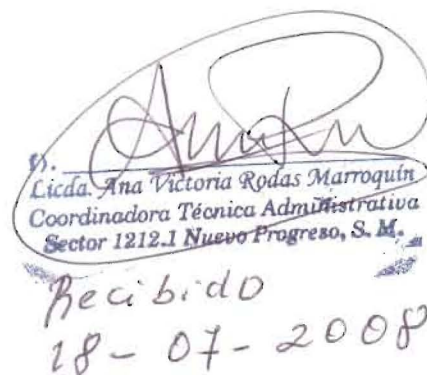 Licda. Ana Victoria Rodas Marroquín
Coordinadora Técnica Administrativa
Sector 1212.1 Nuevo Progreso, S. M.
Recibido
18 - 07 - 2008